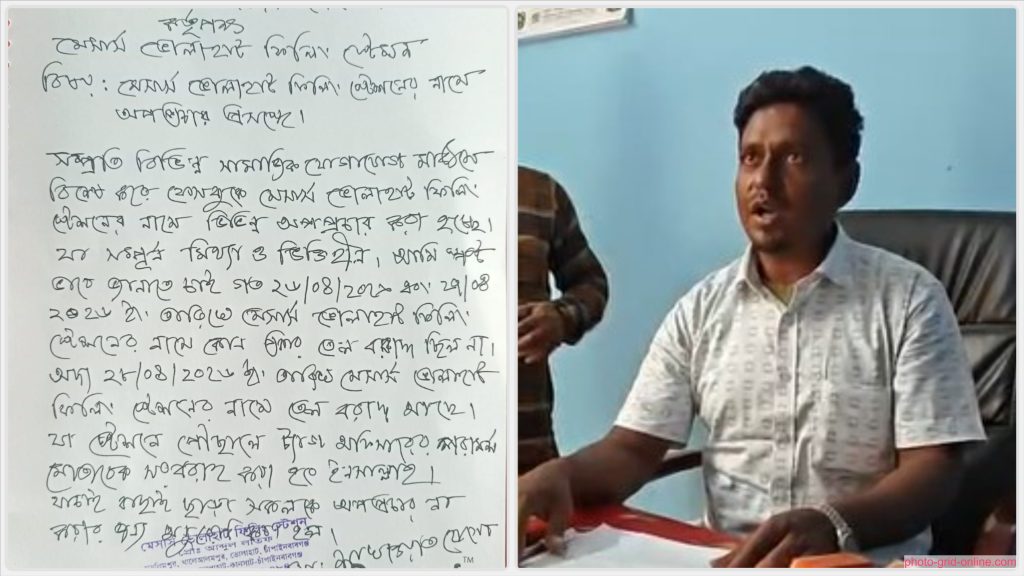 কর্তৃপক্ষ
মেসার্স ভোলাহাট ফিলিং স্টেশন
বিষয়: মেসার্স ভোলাহাট ফিলিং স্টেশনের নামে
অপপ্রচার প্রসঙ্গে।
সম্প্রতি বিভিন্ন সামাজিক যোগাযোগ মাধ্যমে
বিশেষ করে ফেসবুকে মেসার্স ভোলাহাট ফিলিং
স্টেশনের নামে বিভিন্ন অপপ্রচার করা হচ্ছে।
যা সম্পূর্ন মিথ্যা ও ভিত্তিহীন। আমি স্পষ্ট
ভাবে জানাতে চাই গত ২৬/০৪/২০২৬ এবং ২৭/০৪
২০২৬ ইং তারিখে মেসার্স ভোলাহাট ফিলিং
স্টেশনের নামে কোন প্রকার তেল বরাদ্দ ছিল না।
অদ্য ২৮/০৪/২০২৬ ইং তারিখ মেসার্স ভোলাহাট
ফিলিং স্টেশনের নামে তেল বরাদ্দ আছে।
যা স্টেশনে পৌছালে ট্যাগ অফিসারের পরামর্শ
মোতাবেক সরবরাহ করা হবে ইনসাল্লাহ।
যাচাই বাছাই ছাড়া সকলকে অপপ্রচার না
করার জন্য অনুরোধ করা হল।
মেসার্স ভোলাহাট ফিলিং স্টেশন
ভোলাহাট, চাঁপাইনবাবগঞ্জ
TM
photo-grid-online.com